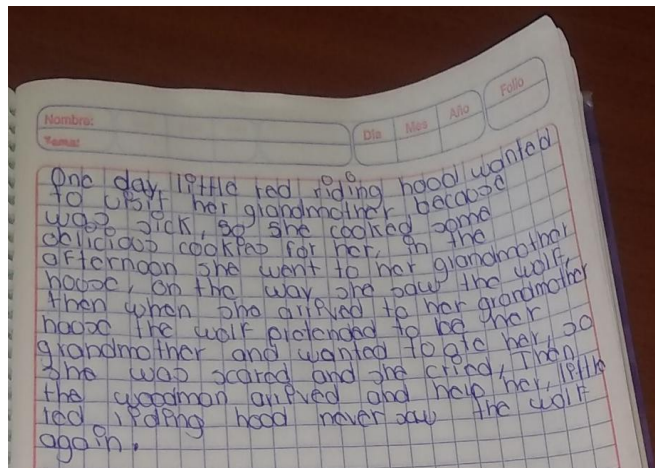 Nombre:
Tema:
Día Mes Año Folio
One day, little red riding hood wanted
to visit her grandmother because
was sick, so she cooked some
delicious cookies for her, in the
afternoon she went to her grandmother
house, on the way she saw the wolf,
then when she arrived to her grandmother
house the wolf pretended to be her
grandmother and wanted to ate her, so
she was scared and she cried, Then
the woodman arrived and help her, little
red riding hood never saw the wolf
again.